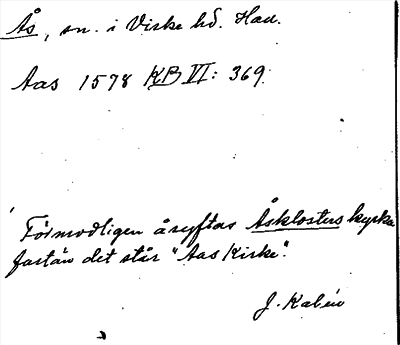 Ås, sn. i Viske hd. Hall.
Aas 1578 KB VI: 369.
Förmodligen åsyftas Åsklosters kyrka
fastän det står "Aas Kirke".
J. Kalén